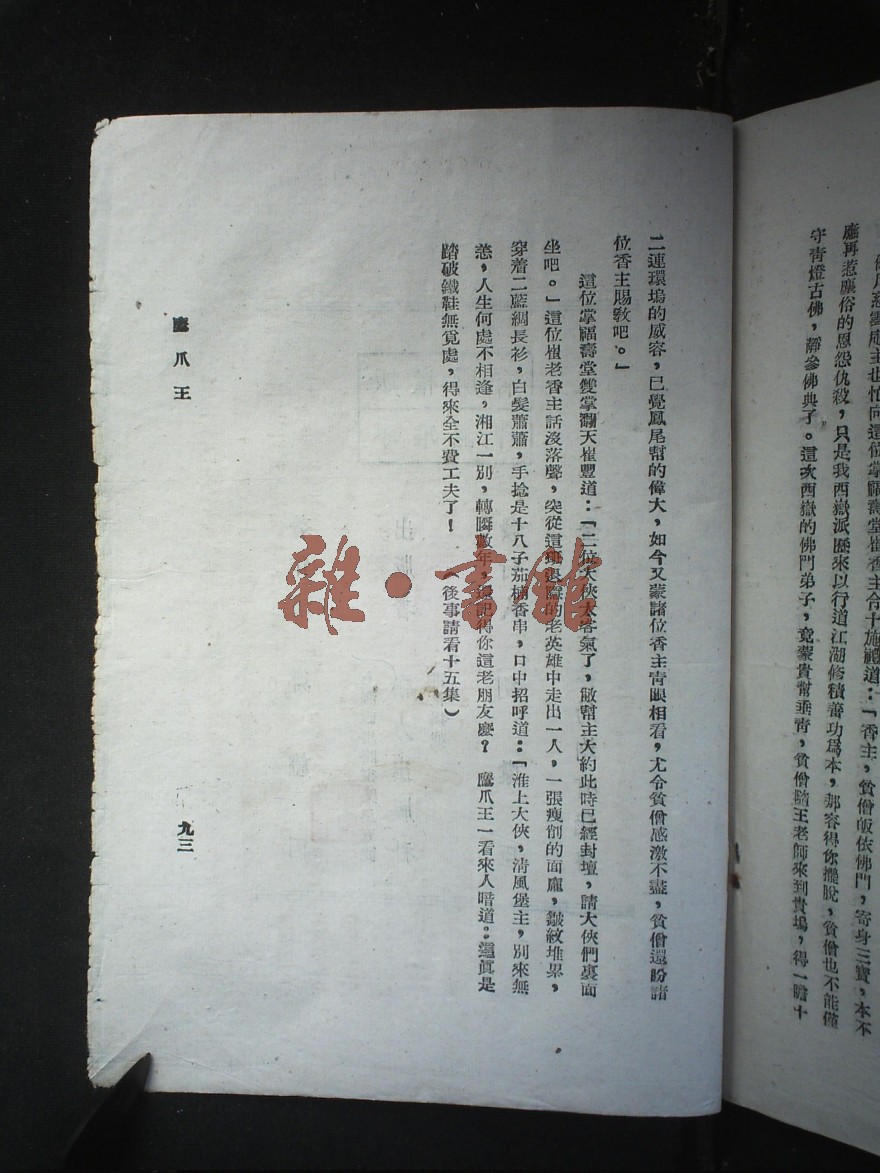 庵主也怕向這位掌福壽堂崔香主合十施禮道：「香主，貧僧皈依佛門，寄身三寶，本不
應再惹塵俗的恩怨仇殺，只是我西嶽派歷來以行道江湖修積善功爲本，那容得你擺脫，貧僧也不能僅
守青燈古佛，靜參佛典了。這次西嶽的佛門弟子，竟蒙貴幫垂青，貧僧隨王老師來到貴塢，得一瞻十
二連環塢的威容，已覺鳳尾幫的偉大，如今又蒙諸位香主靑眼相看，尤令貧僧感激不盡，貧僧還盼諸
位香主賜敎吧。」
這位掌福壽堂雙掌翻天崔豐道：「二位大俠太客氣了，敝幫主大約此時已經封壇，請大俠們裏面
坐吧。」這位崔老香主話沒落聲，突從這班退隱的老英雄中走出一人，一張瘦削的面龐，皺紋堆累，
穿着二藍綢長衫，白髮蕭蕭，手捻是十八子茄楠香串，口中招呼道：「淮上大俠，清風堡主，別來無
恙，人生何處不相逢，湘江一別，轉瞬數年，還記得你這老朋友麼？ 鷹爪王一看來人暗道。這眞是
踏破鐵鞋無覓處，得來全不費工夫了！ （後事請看十五集）
鷹爪王
九三
雜·書館